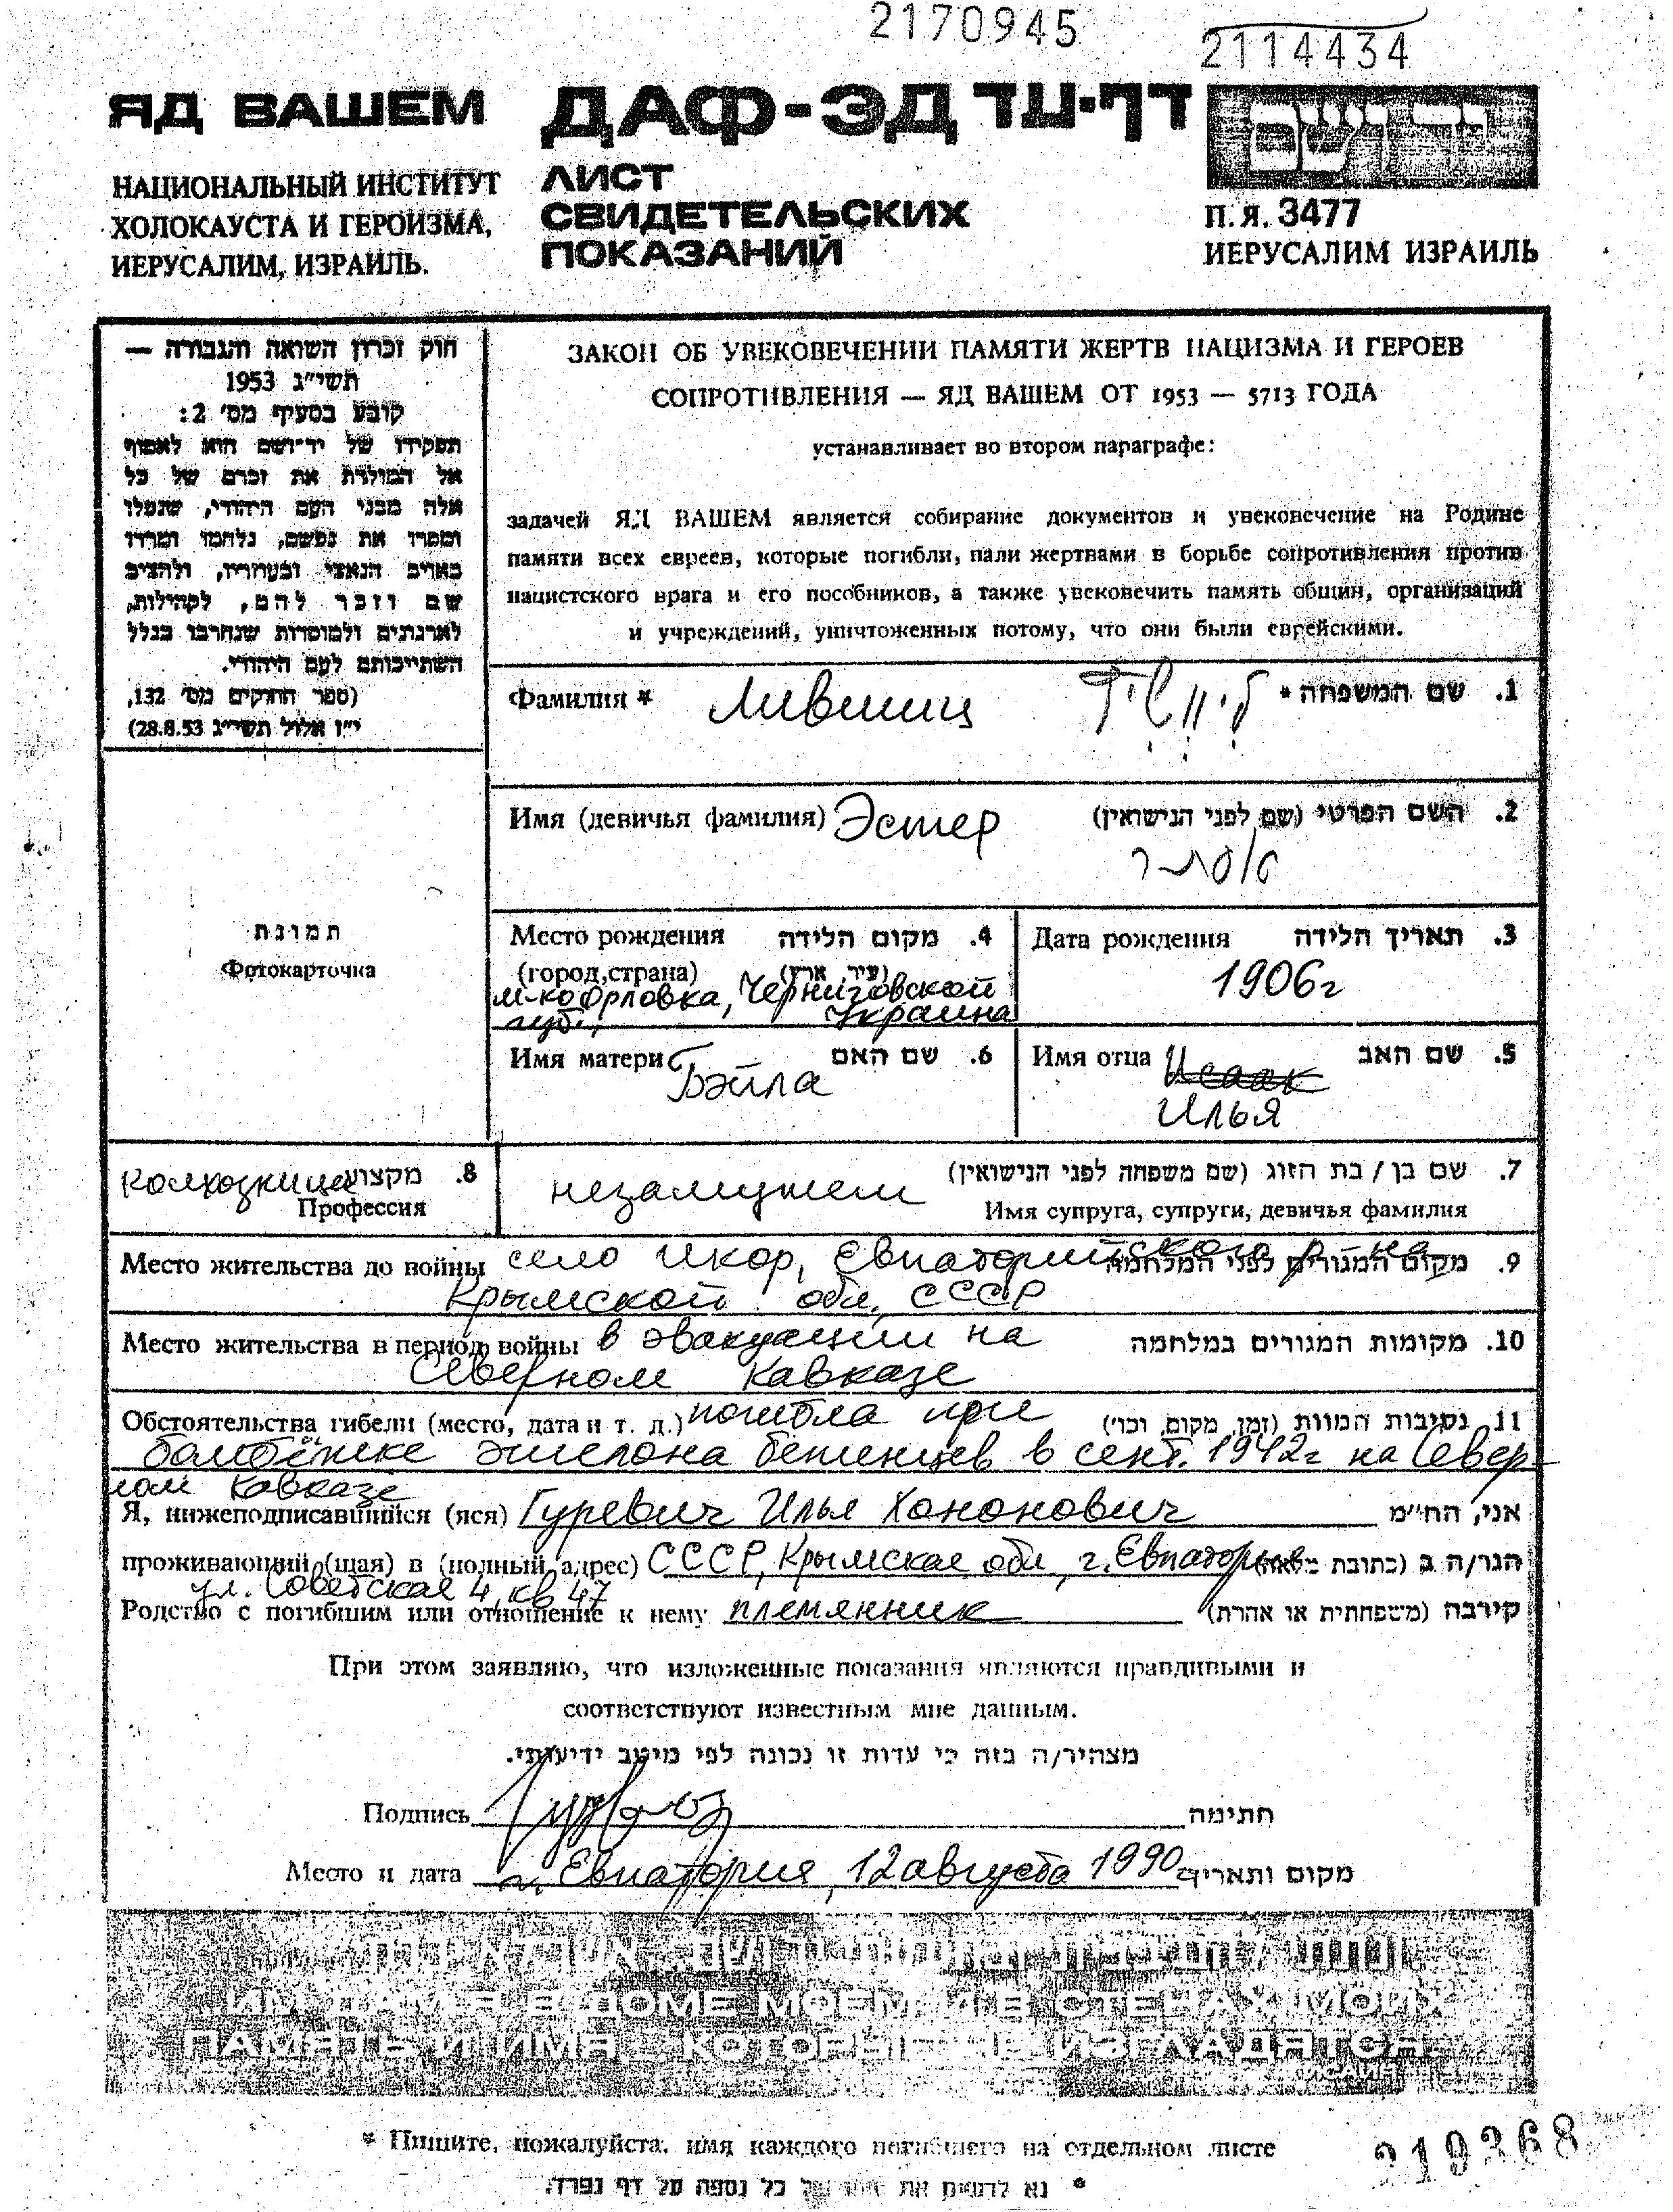 2170945
2114434
ЯД ВАШЕМ
ДАФ-ЭД דף-עד
יד ושם
НАЦИОНАЛЬНЫЙ ИНСТИТУТ
ХОЛОКАУСТА И ГЕРОИЗМА,
ИЕРУСАЛИМ, ИЗРАИЛЬ.
ЛИСТ
СВИДЕТЕЛЬСКИХ
ПОКАЗАНИЙ
П.Я. 3477
ИЕРУСАЛИМ ИЗРАИЛЬ
חוק זכרון השואה והגבורה —
תשי"ג 1953
קובע בסעיף מס' 2:
תפקידו של יד-ושם הוא לאסוף
אל המולדת את זכרם של כל
אלה מבני העם היהודי, שנפלו
ומסרו את נפשם, נלחמו ומרדו
באויב הנאצי ובעוזריו, ולהציב
שם וזכר להם, לקהילות,
לארגונים ולמוסדות שנחרבו בגלל
השתייכותם לעם היהודי.
(ספר החוקים מס' 132,
י"ז אלול תשי"ג 28.8.53)
ЗАКОН ОБ УВЕКОВЕЧЕНИИ ПАМЯТИ ЖЕРТВ НАЦИЗМА И ГЕРОЕВ
СОПРОТИВЛЕНИЯ — ЯД ВАШЕМ ОТ 1953 — 5713 ГОДА
устанавливает во втором параграфе:
задачей ЯД ВАШЕМ является собирание документов и увековечение на Родине
памяти всех евреев, которые погибли, пали жертвами в борьбе сопротивления против
нацистского врага и его пособников, а также увековечить память общин, организаций
и учреждений, уничтоженных потому, что они были еврейскими.
Фамилия * Лившиц ליוושיץ 1. שם המשפחה *
Имя (девичья фамилия) Эстер 2. השם הפרטי (שם לפני הנישואין)
אסתר
תמונת
Фотокарточка
Место рождения 4. מקום הלידה
(город, страна) (עיר, ארץ)
м-ко Орловка, Черниговской
губ., Украина
Дата рождения 3. תאריך הלידה
1906г
Имя матери 6. שם האם
Бэйла
Имя отца Исаак 5. שם האב
Илья
Колхозница 8. מקצוע
Профессия
незамужем 7. שם בן / בת הזוג (שם משפחה לפני הנישואין)
Имя супруга, супруги, девичья фамилия
Место жительства до войны село Икор, Евпаторийского р-на 9. מקום המגורים לפני המלחמה
Крымской обл. СССР
Место жительства в период войны в эвакуации на 10. מקומות המגורים במלחמה
Северном Кавказе
Обстоятельства гибели (место, дата и т. д.) погибла при 11. נסיבות המוות (זמן, מקום, וכו')
бомбёжке эшелона беженцев в сент. 1942г на Север-
ном Кавказе
Я, нижеподписавшийся (яся) Гуревич Илья Хононович אני, הח"מ
проживающий (щая) в (полный адрес) СССР, Крымская обл, г. Евпатория הגר/ה ב (כתובת מלאה)
ул. Советская 4, кв 47
Родство с погибшим или отношение к нему племянник קירבה (משפחתית או אחרת)
При этом заявляю, что изложенные показания являются правдивыми и
соответствуют известным мне данным.
מצהיר/ה בזה כי עדות זו נכונה לפי מיטב ידיעותי.
Подпись חתימה
Место и дата г. Евпатория, 12 августа 1990 מקום ותאריך
ונתתי להם בביתי ובחומותי יד ושם... אשר לא יכרת
ИМ ДАМ Я В ДОМЕ МОЕМ И В СТЕНАХ МОИХ
ПАМЯТЬ И ИМЯ... КОТОРЫЕ НЕ ИЗГЛАДЯТСЯ
* Пишите, пожалуйста, имя каждого погибшего на отдельном листе
219368
* נא לרשום את שמו של כל נספה על דף נפרד.